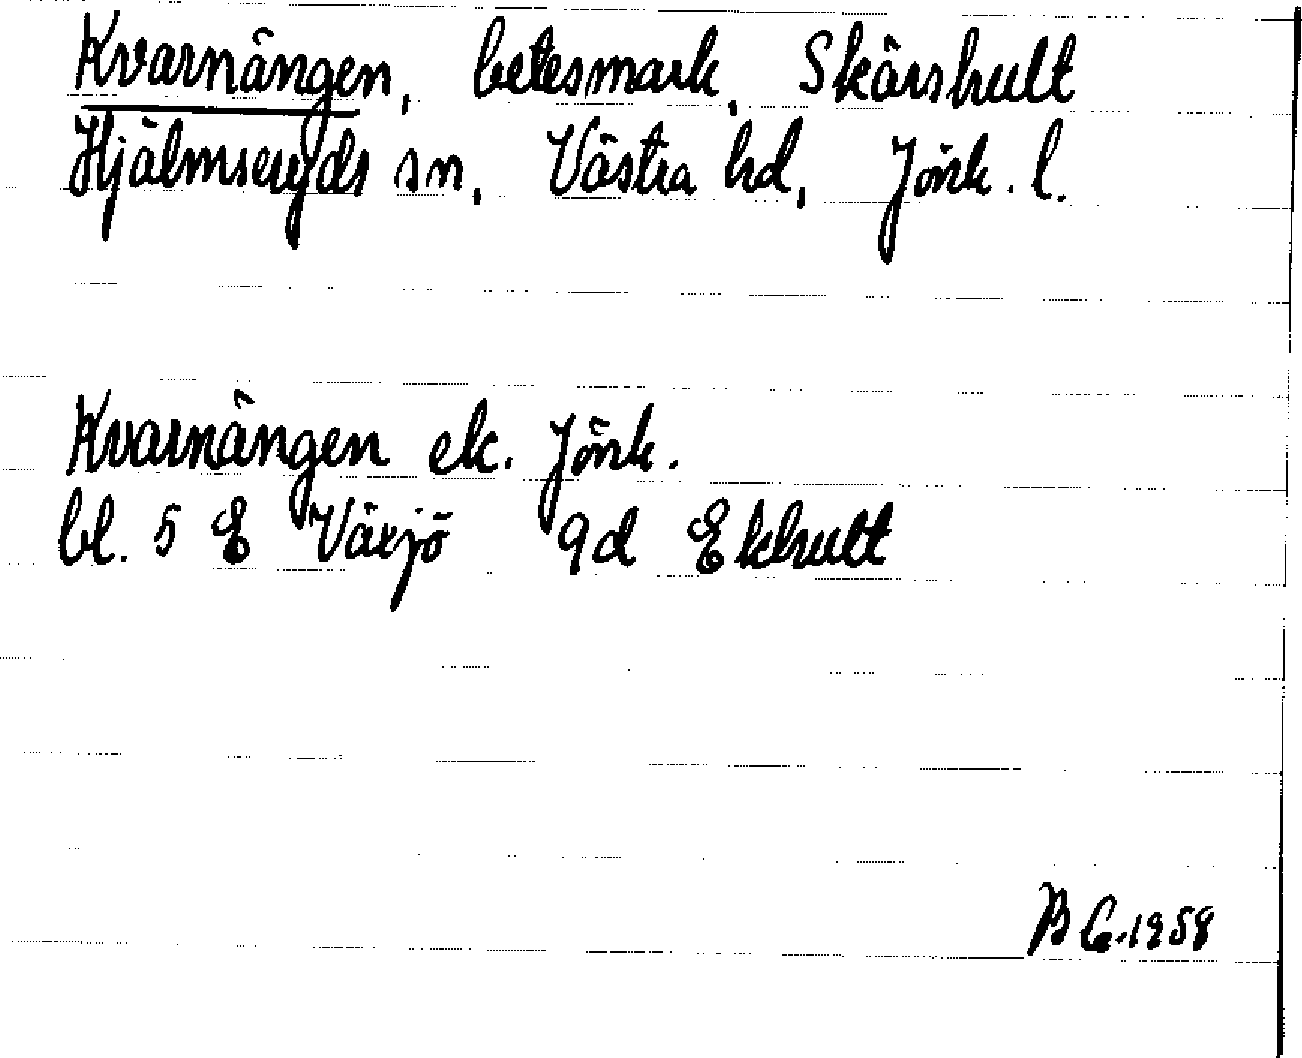 Kvarnängen, betesmark, Skärshult
Hjälmseryds sn, Västra hd, Jönk. l.
Kvarnängen ek. Jönk.
bl. 5 E Växjö 9d Ekhult
B G. 1958